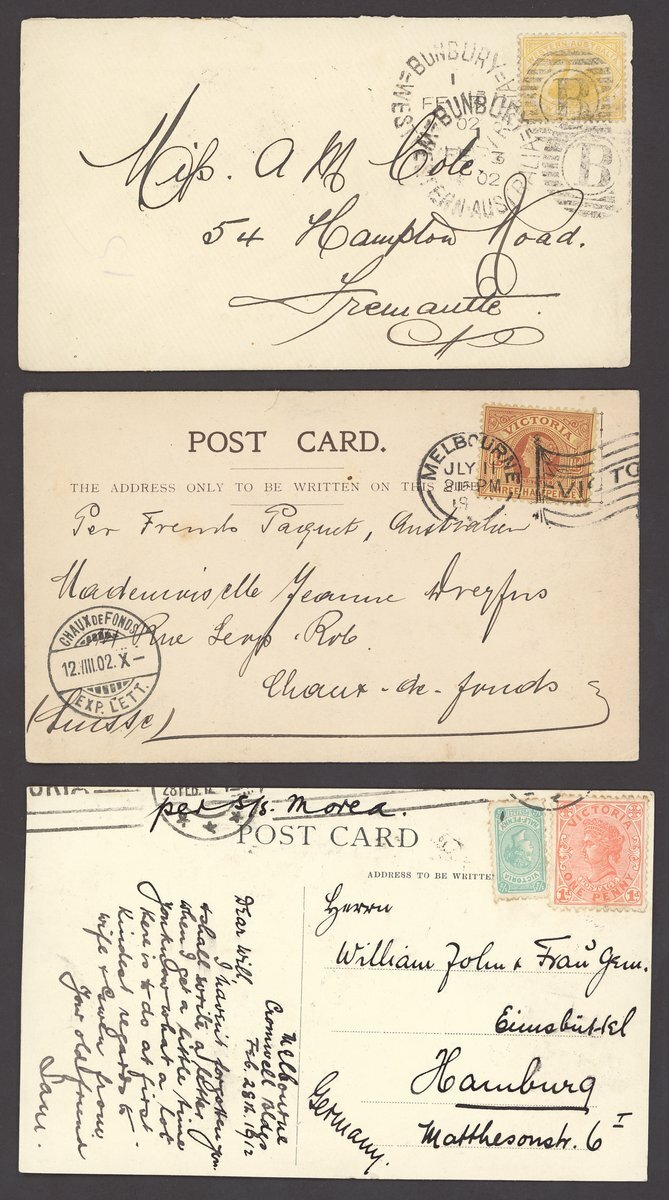 BUNBURY
WESTERN-AUSTRALIA
1
FE 3
02
BUNBURY
02
B
B
Miss. A M Cole.
54 Hampton Road.
Fremantle.
POST CARD.
THE ADDRESS ONLY TO BE WRITTEN ON THIS
MELBOURNE
JLY 11
PM
19
VICTORIA
THREE HALFPENCE
VICTO
Per French Paquet, Australien
Mademoiselle Jeanne Dreyfus
Rue Leop. Rob.
Chaux-de-fonds
(Suisse)
CHAUX DE FONDS
12.VIII.02.X-
EXP. LETT.
ORIA
28 FEB 12
per S/S. Morea.
POST CARD
ADDRESS TO BE WRITTEN
VICTORIA
HALF-PENNY
VICTORIA
POSTAGE
1D ONE PENNY 1D
Melbourne
Cromwell Bldgs
Feb. 28th. 1912
Dear Will,
I haven't forgotten you
& shall write a letter
when I get a little time
You know what a lot
there is to do at first
Kindest regards to
wife &
Your old friend
Herrn
William John & Frau Gem.
Eimsbüttel
Hamburg
Matthesonstr. 6 I
Germany.